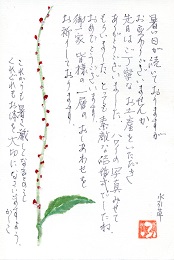 暑い日が続いておりますが
お変わりございませんか
先日はご丁寧なお土産をいただき
ありがとうございました ハワイの写真みせて
もらいました。とても素敵な結婚式でしたね。
おめでとうございます
御二家 皆様の一層のおしあわせを
お祈りしております
これからも暑さ厳しくなるとのこと
くれぐれもお体を大切になさいますよう。
かしこ
水引草